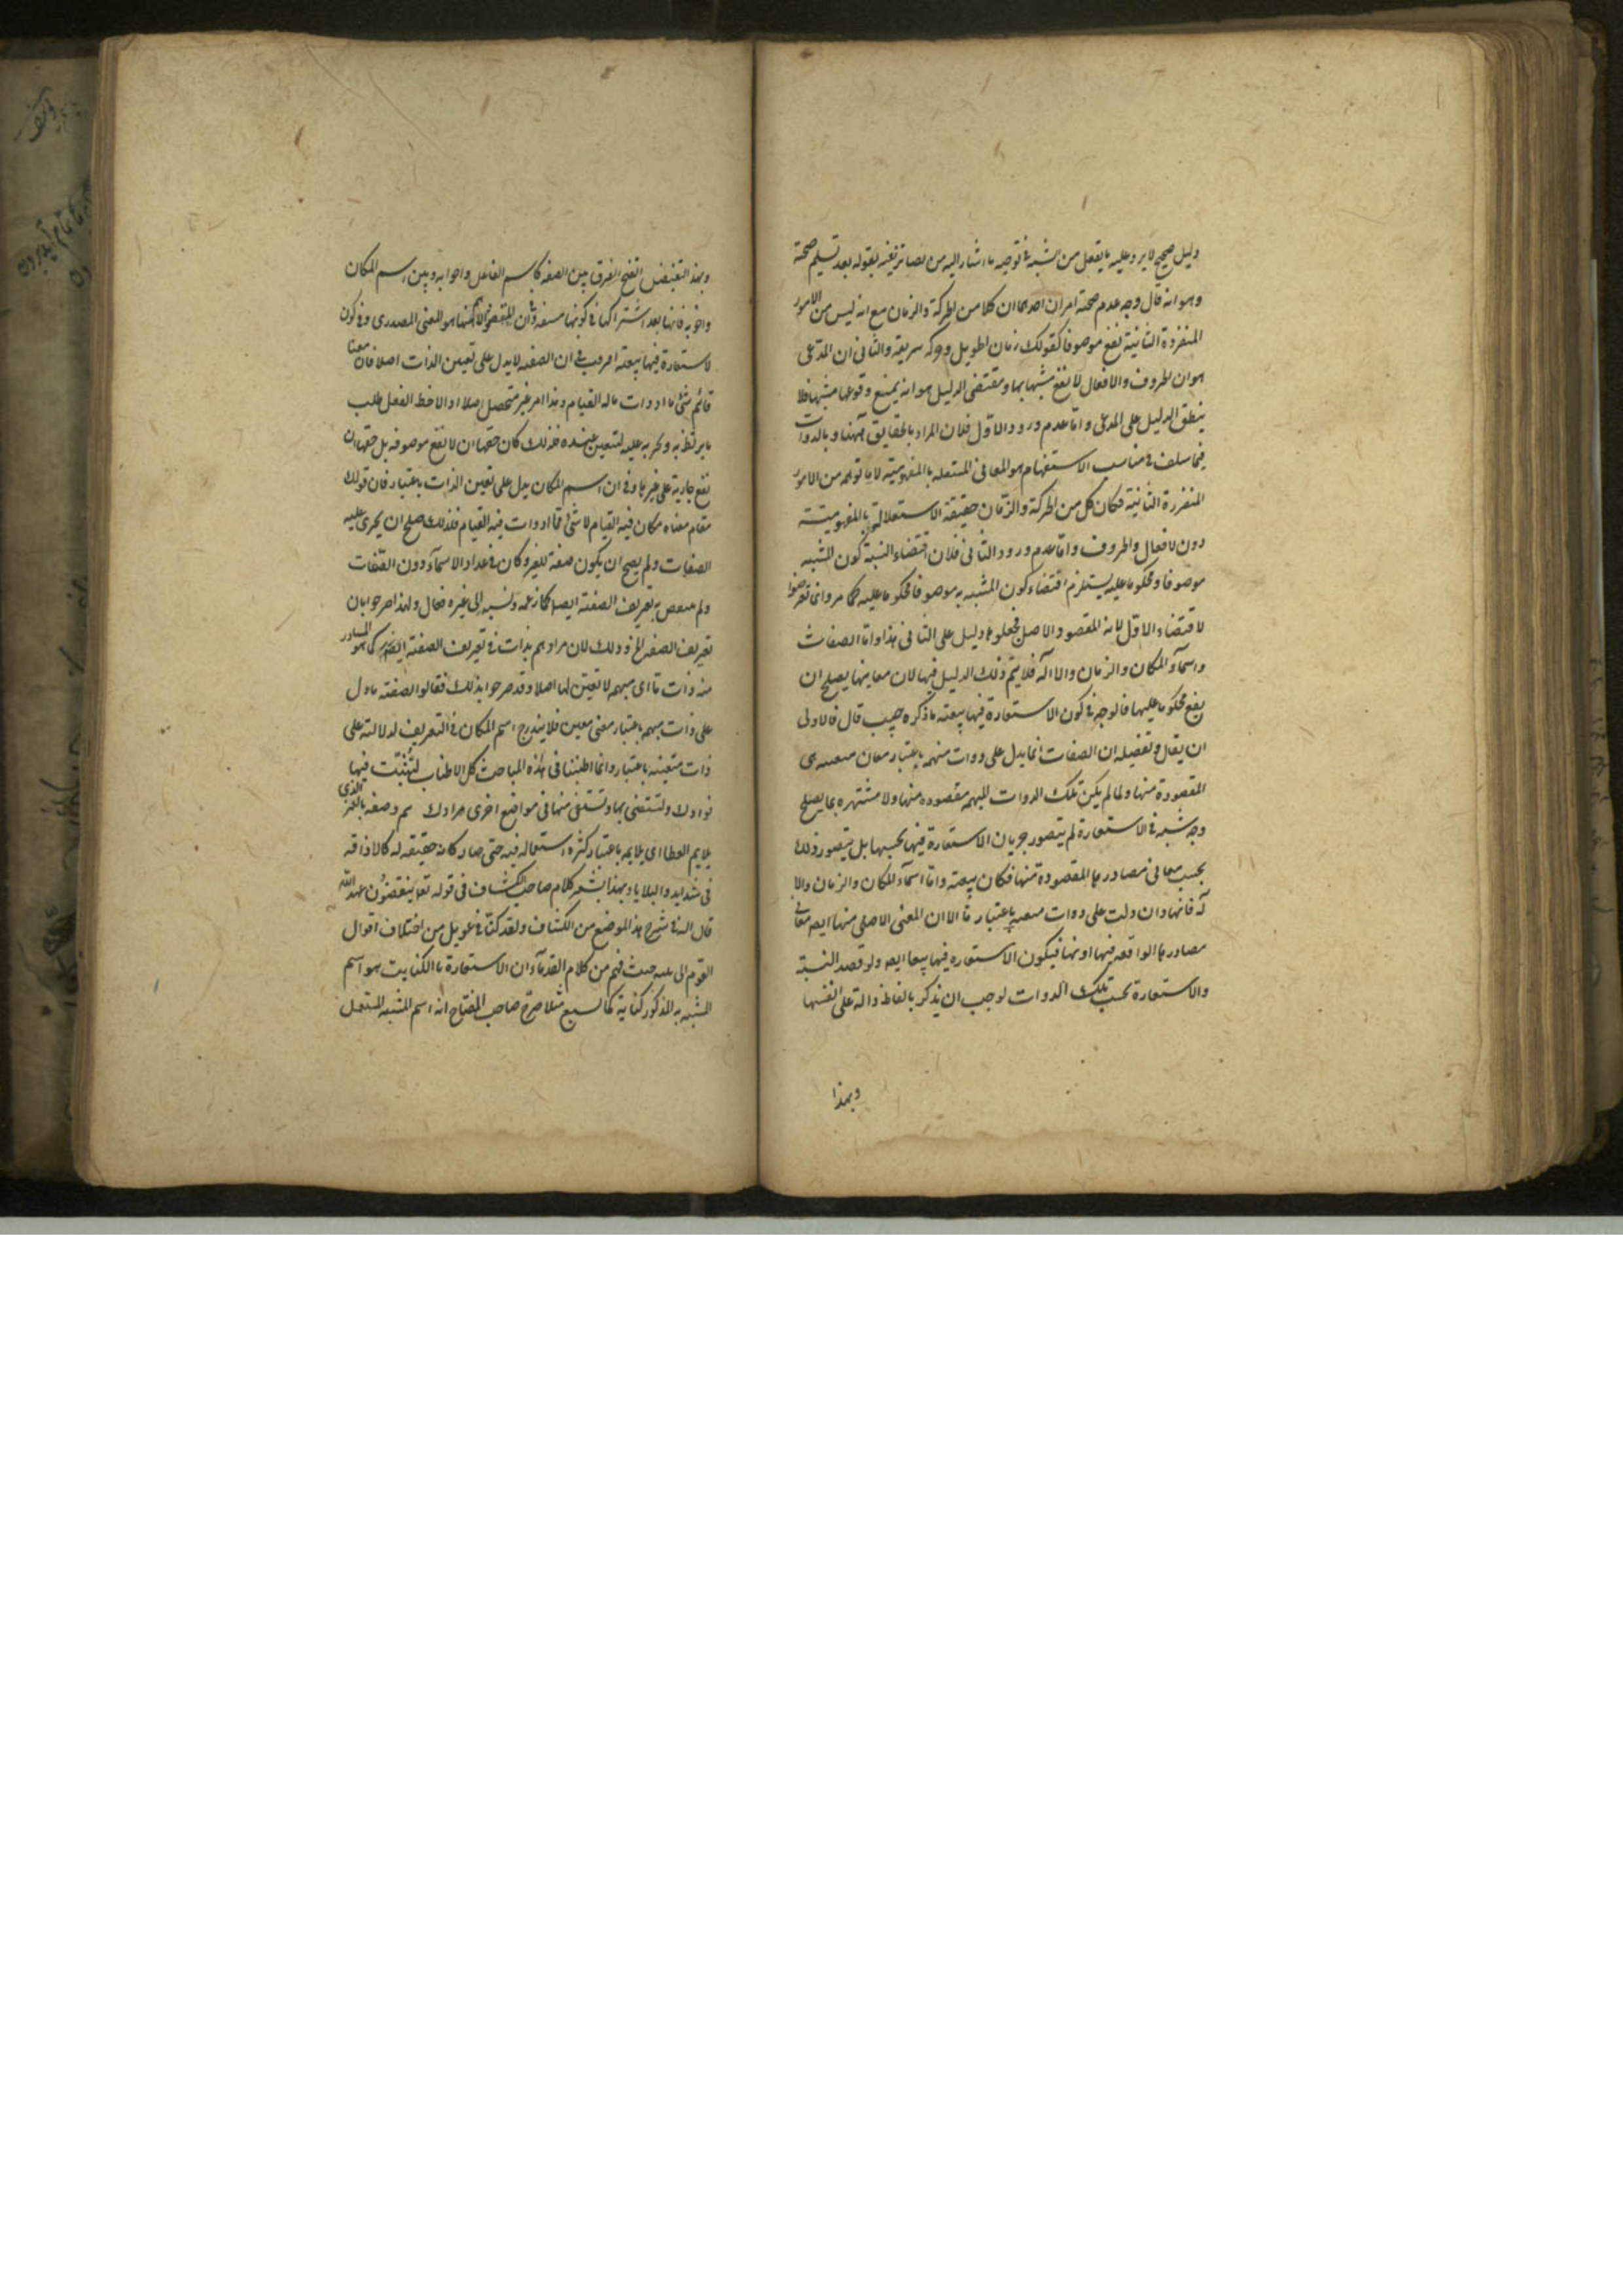 دليل صحيح لا يرد عليه ما يتعقل من الشبه في توجيه ما اشار اليه من بقوله بعد تسليم صحته
وهو انه قال وجه عدم صحته امران احدهما ان كلا من الحركة والزمان مع انه ليس من الامور
المتقررة الثابتة تقع موصوفا كقولك زمان طويل وحركة سريعة والثاني ان المدعى
هو ان الحروف والافعال لا تقع مشبها بها ومقتضى الدليل هو انه يمتنع وقوعها مشبها فلا
ينطبق الدليل على المدعى واما عدم ورود الاول فلان المراد بالحقايق ههنا وبالذوات
فيما سلف في مباحث الاستفهام هو المعاني المستقلة بالمفهومية لا ما توهمه من الامور
المتقررة الثابتة فكان كل من الحركة والزمان حقيقة لاستقلاله بالمفهومية
دون الافعال والحروف واما عدم ورود الثاني فلان اقتضاء التشبيه كون المشبه
موصوفا ومحكوما عليه يستلزم اقتضاء كون المشبه به موصوفا محكوما عليه كما مر وانما تعرضوا
لاقتضاء الاول لانه المقصود الاصلي فجعلوه دليل على الثاني هذا واما الصفات
واسماء المكان والزمان والآلة فلا يتم ذلك الدليل فيها لان معانيها يصلح ان
يقع محكوما عليها فالوجه في كون الاستعارة فيها تبعية ما ذكره حيث قال فالاولى
ان يقال وتفصيله ان الصفات انما يدل على ذوات مبهمة باعتبار معان معينة هي
المقصودة منها ولما لم يكن تلك الذوات المبهمة مقصودة منها ولا مشتهرة بما يصلح
وجه شبه في الاستعارة لم يتصور جريان الاستعارة فيها بحسبها بل يتصور ذلك
بحسب معاني مصادرها المقصودة منها فكان تبعية واما اسماء المكان والزمان والا
لة فانها وان دلت على ذوات معينة باعتبار ما الا ان المعنى الاصلي منها ايضا معاني
مصادرها الواقعة فيها او بها فيكون الاستعارة فيها تبعا ايضا ولو قصد التشبيه
والاستعارة بحسب تلك الذوات لوجب ان يذكر بالفاظ دالة على انفسها
وبهذا
وبهذا التفصيل اتضح الفرق بين الصفة كاسم الفاعل واخواته وبين اسم المكان
واخويه فانها بعد اشتراكها في كونها مشتقة وان المقصود الاهم منها هو المعنى المصدري وفي كون
الاستعارة فيها تبعية افترقت في ان الصفة لا يدل على تعيين الذات اصلا فان معنى
قائم شيء ما او ذات ما له القيام وهذا امر غير متحصل اصلا اذا لاحظه الفعل طلب
ما يرتبط به ويجريه عليه ليتعين عنده فلذلك كان حقها ان لا تقع موصوفة بل حقها ان
تقع جارية على غيرها وفي ان اسم المكان يدل على تعيين الذات باعتبار فان قولك
مقام معناه مكان فيه القيام لا شيء ما او ذات فيه القيام فلذلك صلح ان يجري عليه
الصفات ولم يصح ان يكون صفة للغير وكان في عداد الاسماء دون الصفات
ولم ينتقض به تعريف الصفة ايضا كما زعمه ونسبه الى غيره فقال ولهذا صرحوا بان
تعريف الصفة الخ وذلك لان مرادهم بذات في تعريف الصفة ايضا كما هو المتبادر
منه ذات ما اي مبهمة لا تعين لها اصلا وقد صرحوا بذلك فقالوا الصفة ما دل
على ذات مبهمة باعتبار معنى معين فلا يندرج اسم المكان في التعريف لدلالته على
ذات متعينة باعتبار وانما اطنبنا في هذه المباحث كل الاطناب لتثبت فيها
فؤادك ولتستضيء بها وتستعين منها في مواضع اخرى مرادك ثم وصفه بالغمر الذي
يلايم العطا اي يلايمه باعتبار كثرة استعماله فيه حتى صار كانه حقيقة له كالاذاقة
في الشدايد والبلايا وبهذا يشعر كلام صاحب الكشاف في قوله تعالى ينقضون عهد الله
قال السيد في شرح هذا الموضع من الكشاف ولقد كنا في عويل من اختلاف اقوال
القوم الى حيث فهم من كلام القدماء ان الاستعارة بالكناية هو اسم
المشبه به المذكور كناية كالسبع مثلا صرح صاحب المفتاح انه اسم المشبه المستعمل